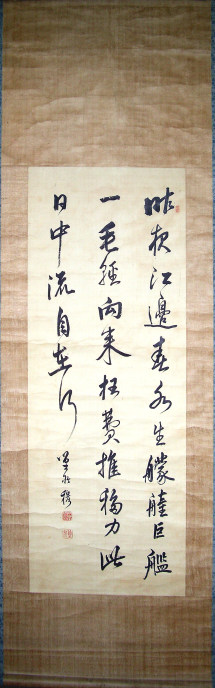 昨夜江邊春水生艨艟巨艦
一毛輕向来枉費推移力此
日中流自在行